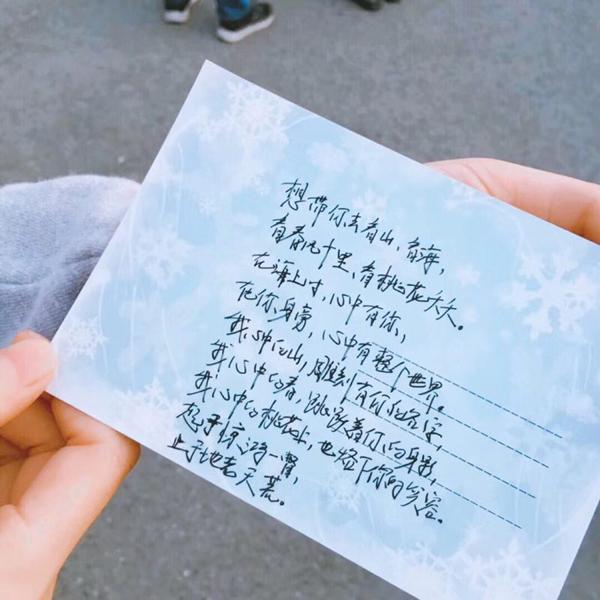 想带你去看山、看海,
看春风十里,看桃花夭夭。
在海上时,心中有你,
在你身旁,心中有整个世界。
我心中的山,雕刻有你的名字,
我心中的春,跳跃着你的身影,
我心中的桃花上,也烙下你的笑容。
起于惊鸿一瞥,
止于地老天荒。